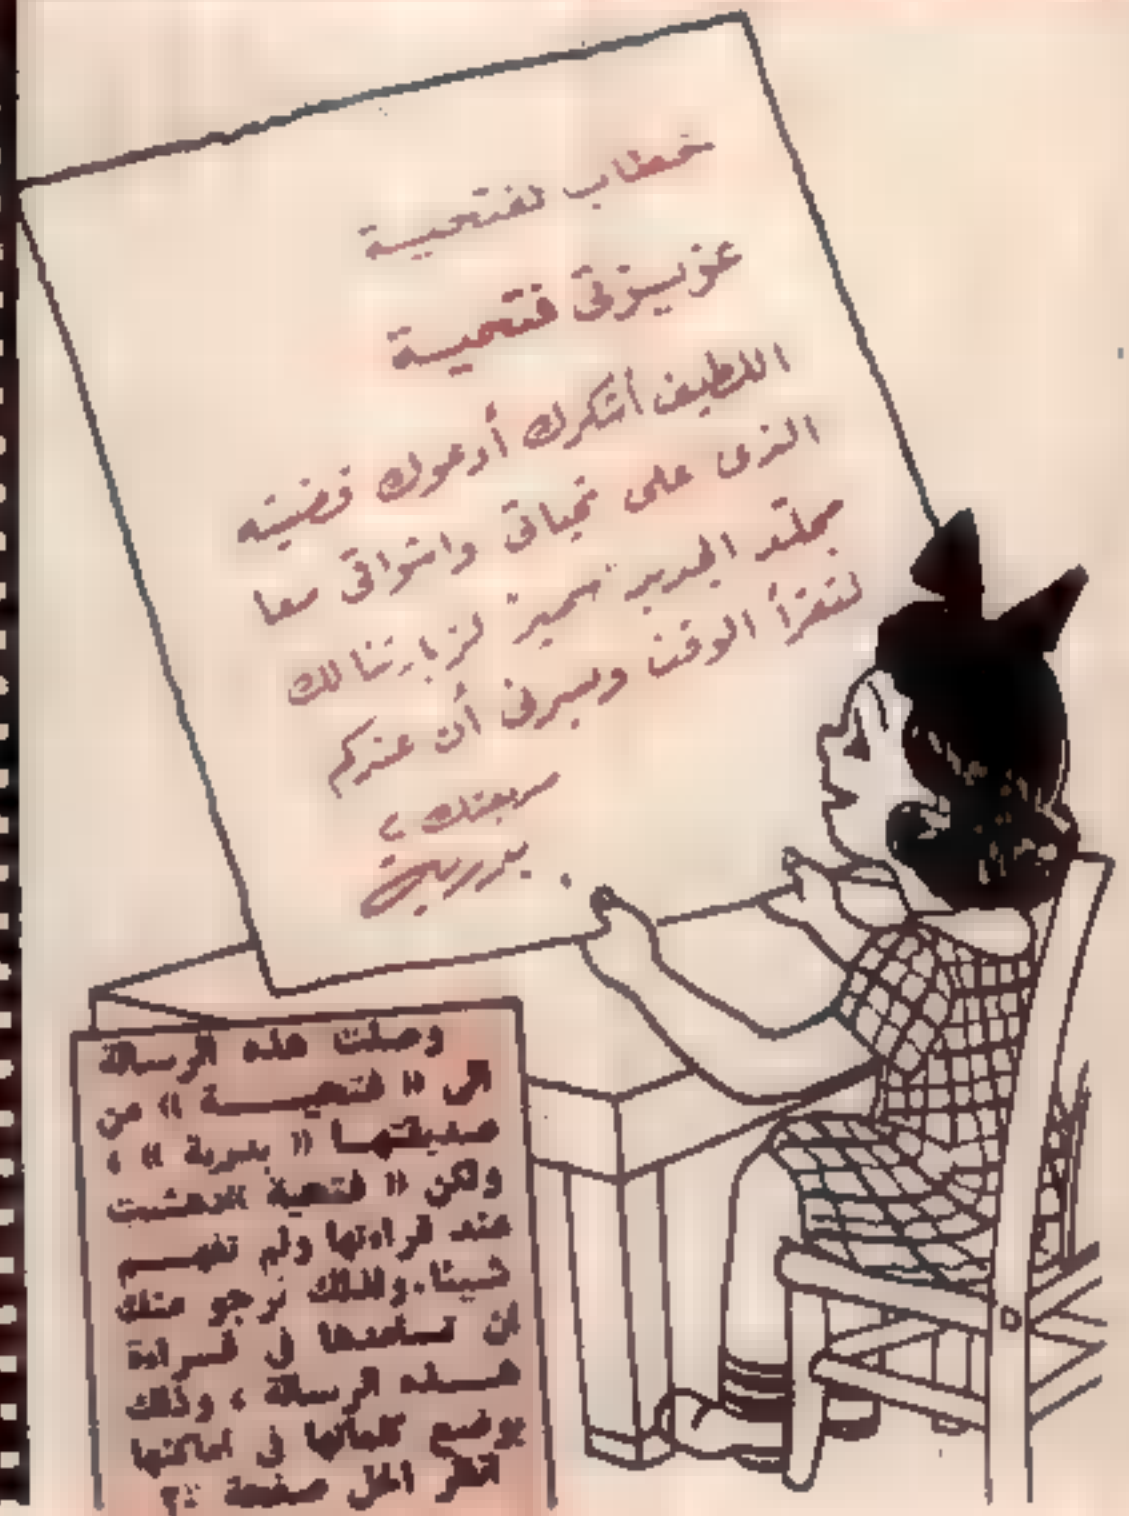 خطاب لفتحية
عزيزتى فتحية
اللطيف أشكرك أدعوك قضيته
الذى على تحياتى واشواقى معا
مجلتد الجديد "سمير" لزيارتنا لك
لتقرأ الوقت ويسرنى أن عندكم
بدرية
وصلت هذه الرسالة
الى « فتحيــــة » من
صديقتهــا « بدرية » ،
ولكن « فتحية »دهشت
عند قراءتها ولم تفهــم
شيئا،ولذلك نرجو منك
ان تســاعدها فى قــراءة
هــذه الرسالة ، وذلك
بوضع كلماتها فى اماكنها
انظر الحل صفحة